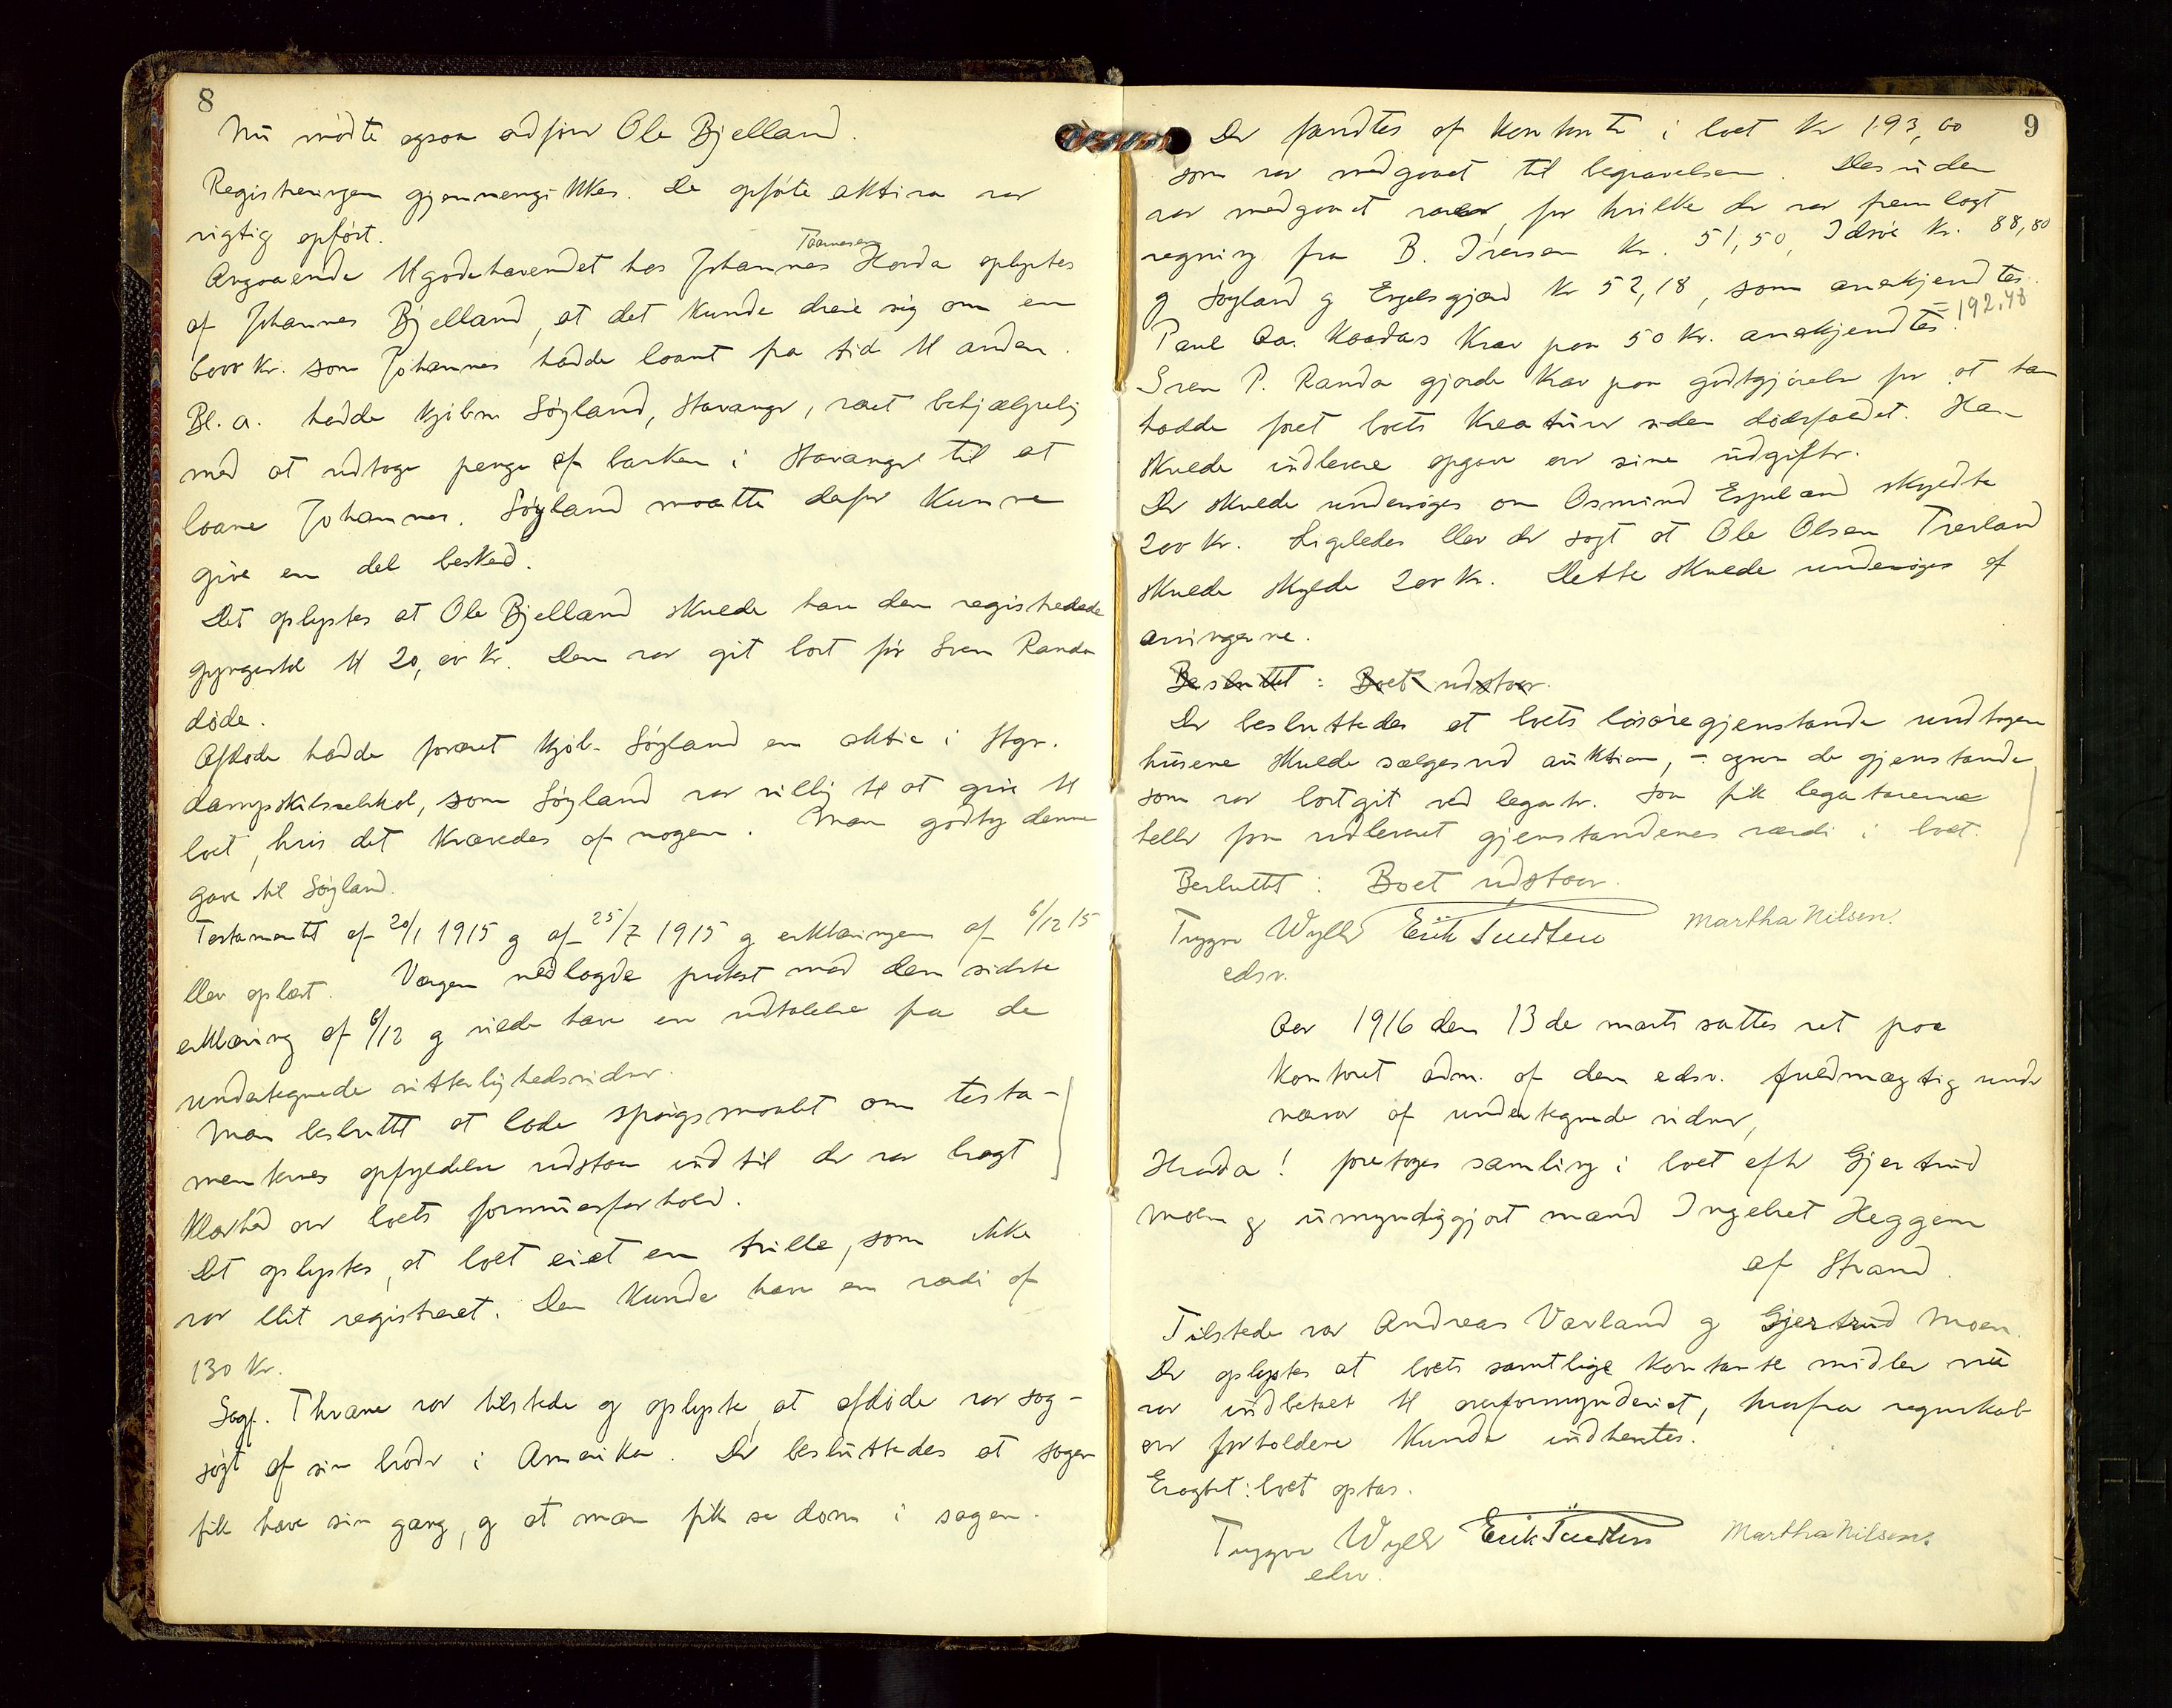 8
Nu mødte ogsaa Ole Bjelland.
Registreringen gjennemgikkes. De opførte aktiva var
rigtig opført.
Angaaende tilgodehavendet hos Johannes Tormosen Horda oplystes
af Johannes Bjelland, at det kunde dreie sig om en
6000 kr. som Johannes hadde laant fra tid til anden.
Bl. a. hadde kjøbm Søyland, Stavanger, været behjælpelig
med at udtage penge af banken i Stavanger til at
laane Johannes. Søyland maatte derfor kunne
give en del besked.
Det oplystes at Ole Bjelland skulde have den registrerede
gyngestol til 20,00 kr. Den var git bort før Sven Randa
døde.
Afdøde hadde foræret kjøb. Søyland en aktie i Stgr.
dampskibsselskab, som Søyland var villig til at give til
boet, hvis det krævedes af nogen. Man godtog denne
gave til Søyland.
Testamentet af 20/1 1915 g af 25/7 1915 g erklæringen af 6/12 15
blev oplæst. Værgen nedlagde protest mod den sidste
erklæring af 6/12 g vilde have en udtalelse fra de
undertegnede vitterlighedsvidner.
Man besluttet at lade spørgsmaalet om testa-
menternes opfyldelse udstaa indtil der var bragt
klarhed over boets formuesforhold.
Det oplystes, at boet eiet en trille, som ikke
var blit registreret. Den kunde have en værdi af
130 kr.
Sagf. Thrane var tilstede g oplyste, at afdøde var sag-
søgt af sin broder i Amerika. Der besluttedes at sagen
fik have sin gang, g at man fik se dom i sagen.
9
Der fandtes af kontanter i boet kr 193,00
som var medgaaet til begravelsen. Desuden
var medgaaet varer, for hvilke der var fremlagt
regning fra B. Iversen kr. 51,50, Idsøe kr. 88,80
g Søyland g Engelsgjærd kr 52,18, som anerkjendtes.
= 192.48
Paul Aa. Kaadas krav paa 50 kr. anerkjendtes.
Sven P. Randa gjorde krav paa godtgjørelse for at han
hadde foret boets kreaturer siden dødsfaldet. Han
skulde indlevere opgave over sine udgifter.
Der skulde undersøges om Osmund Espeland skyldte
200 kr. Ligeledes blev der sagt at Ole Olsen Treland
skulde skylde 200 kr. Dette skulde undersøges af
arvingerne.
Besluttet: Boet udstaar.
Der besluttedes at boets løsøregjenstande undtagen
husene skulde sælges ved auktion, - ogsaa de gjenstande
som var bortgit ved legater. Saa fik legatarerne
heller faa udleveret gjenstandenes værdi i boet.
Besluttet: Boet udstaar.
Trygve Wyller Erik Martha Nilsen.
edsv.
Aar 1916 den 13de marts sattes ret paa
kontoret adm. af den edsv. fuldmægtig under
nærvær af undertegnede vidner,
Hvorda! foretoges samling i boet efter Gjertrud
Moen g umyndiggjort mand Ingebret Heggem
af Strand.
Tilstede var Andreas Varland g Gjertrud Moen.
Der oplystes at boets samtlige kontante midler nu
var indbetalt til overformynderiet, hvorfra regnskab
over forholdene kunde indhentes.
Eragtet: boet optas.
Trygve Wyller Erik Martha Nilsen.
edsv.